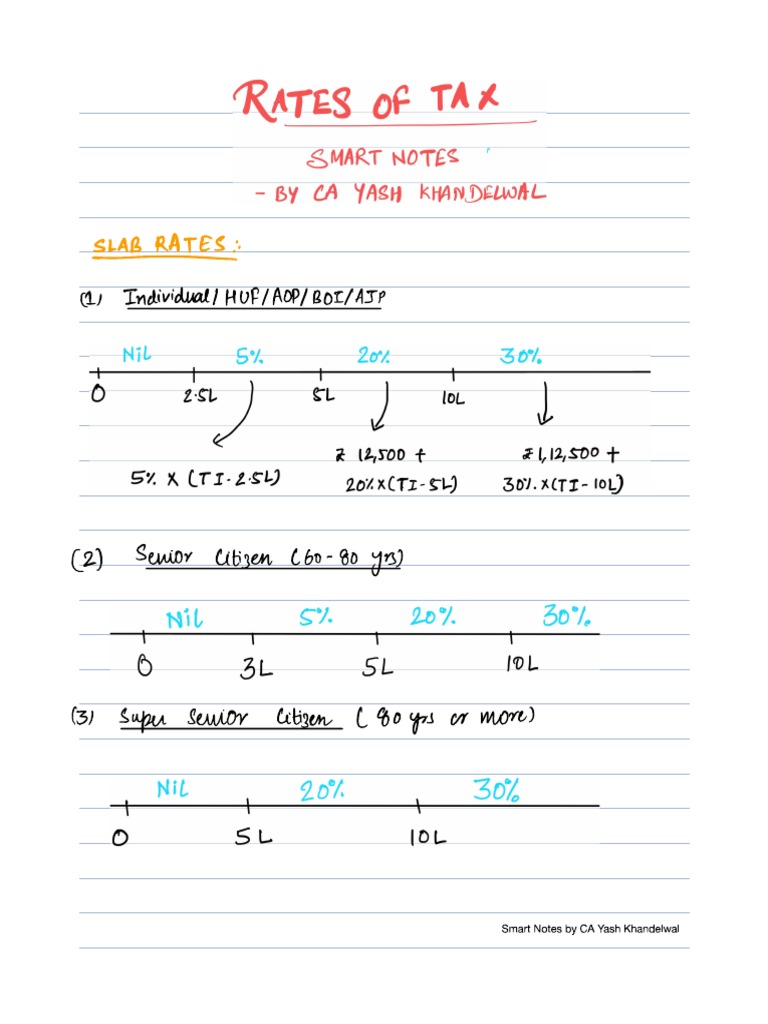 RATES OF TAX
SMART NOTES
- BY CA YASH KHANDELWAL
SLAB RATES :
(1) Individual / HUF / AOP / BOI / AJP
Nil 5% 20% 30%
0 2.5L 5L 10L
₹ 12,500 + ₹ 1,12,500 +
5% X (TI-2.5L) 20% X (TI-5L) 30% X (TI-10L)
(2) Senior Citizen (60-80 yrs)
Nil 5% 20% 30%
0 3L 5L 10L
(3) Super Senior Citizen ( 80 yrs or more)
Nil 20% 30%
0 5L 10L
Smart Notes by CA Yash Khandelwal